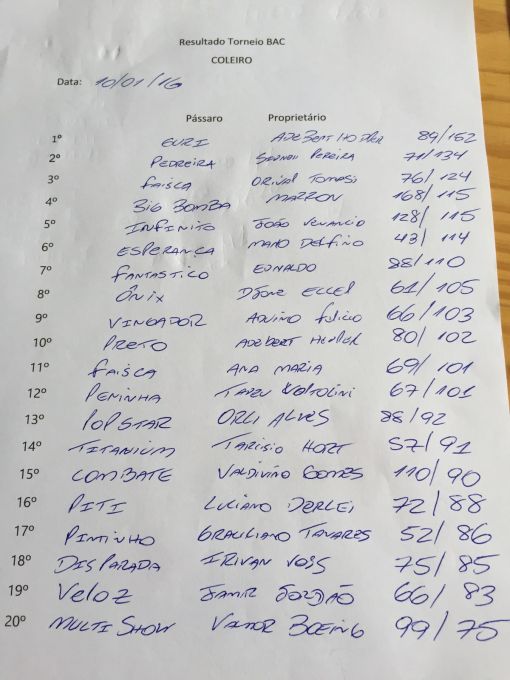 Resultado Torneio BAC
COLEIRO
Data: 10/01/16
Pássaro Proprietário
1º EURI ADEBERT 89/162
2º PEDREIRA PEREIRA 71/134
3º FAISCA ORIVAL TOMASI 76/124
4º BIG BOMBA MAZZON 168/115
5º INFINITO JOÃO VENANCIO 128/115
6º ESPERANÇA MARO DELFINO 43/114
7º FANTASTICO EDNALDO 88/110
8º ÔNIX ECCEL 61/105
9º VINGADOR AVUINO 66/103
10º PRETO ADEBERT 80/102
11º FAISCA ANA MARIA 69/101
12º PENINHA VOLTOLINI 67/101
13º POP STAR ORLI ALVES 88/92
14º TITANIUM TARCISIO HORT 57/91
15º COMBATE VALDIVINO GOMES 110/90
16º PITI LUCIANO DERLEI 72/88
17º PINTINHO GRACILIANO TAVARES 52/86
18º DISPARADA IRIVAN VOSS 75/85
19º VELOZ JAMIR JORDÃO 66/83
20º MULTI SHOW VALMOR BOEING 99/75